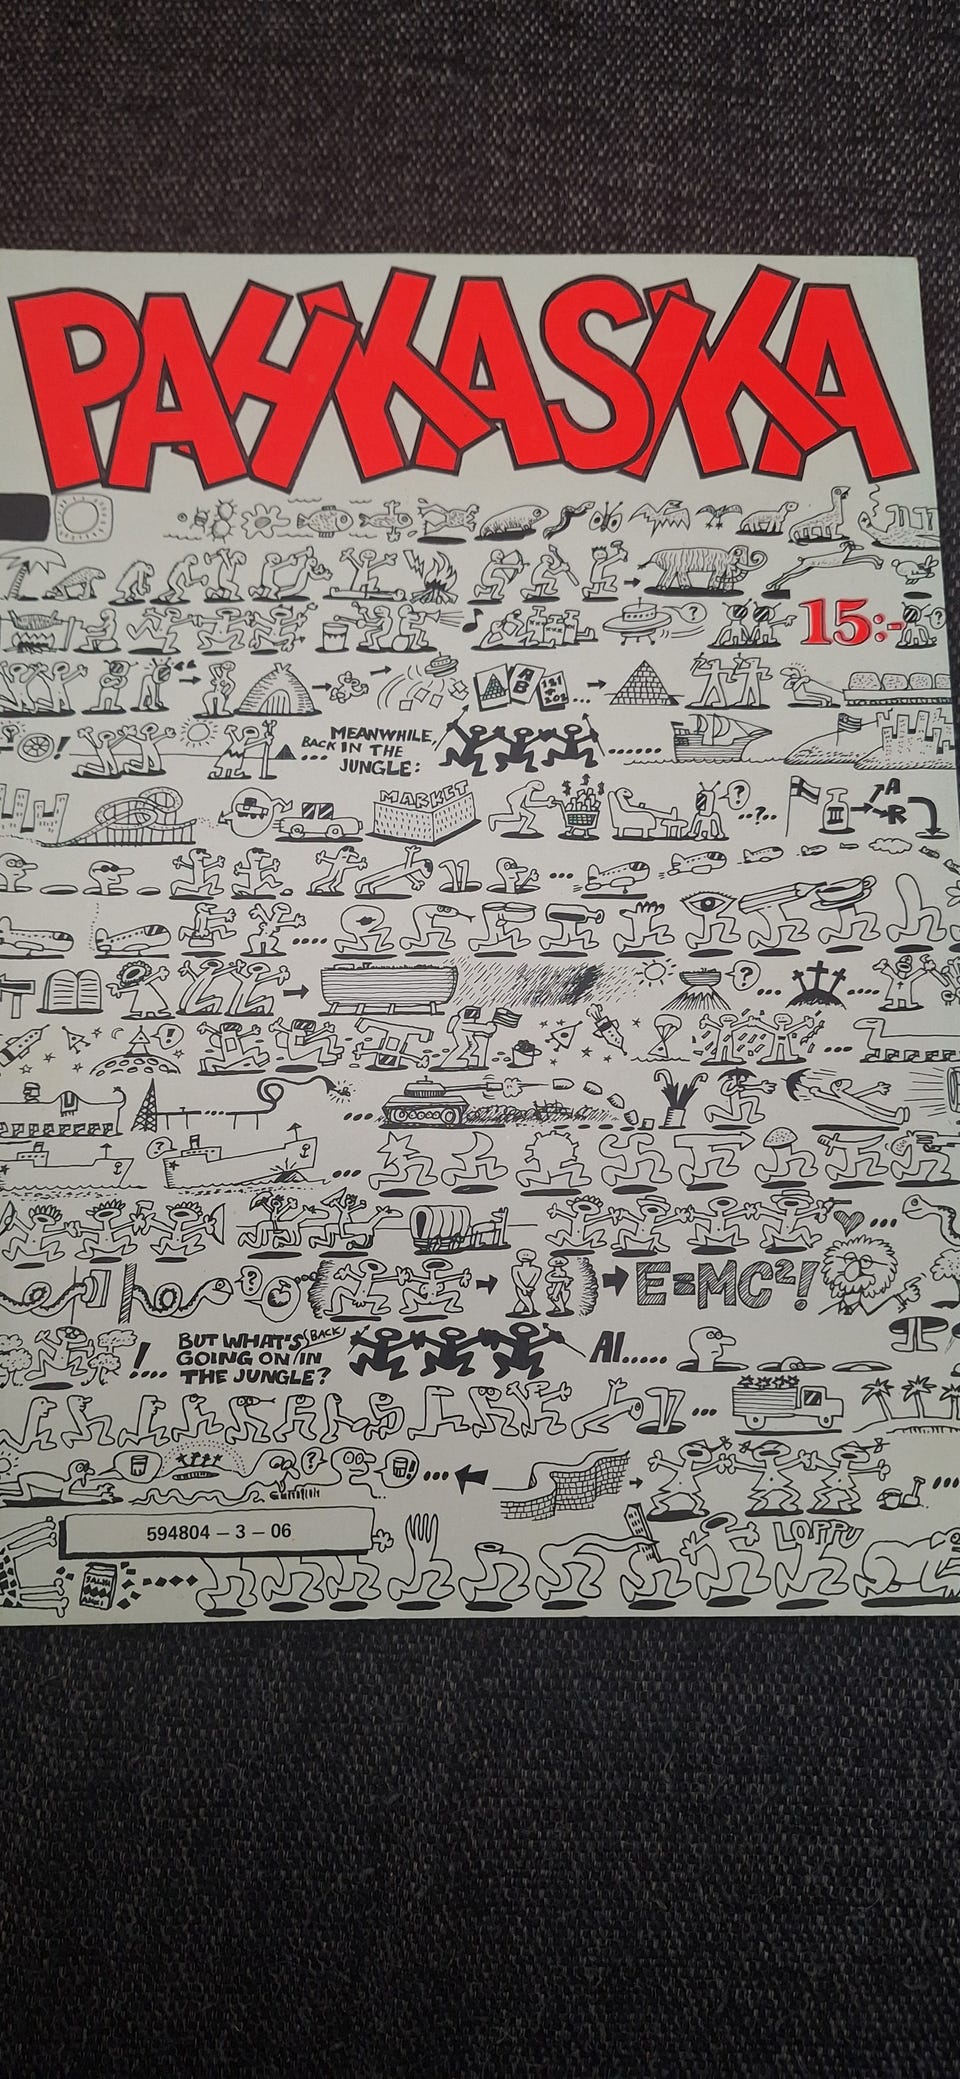 PAHKASIKA
15:-
?
A B 121 +2 0 2...
!
MEANWHILE, BACK IN THE JUNGLE:
MARKET
$ $ $
?
..?..
III
A
R
?
!
?
?
E=MC²!
!....
BUT WHAT'S GOING ON BACK IN THE JUNGLE?
AI......
?
!
594804 – 3 – 06
LOPPU